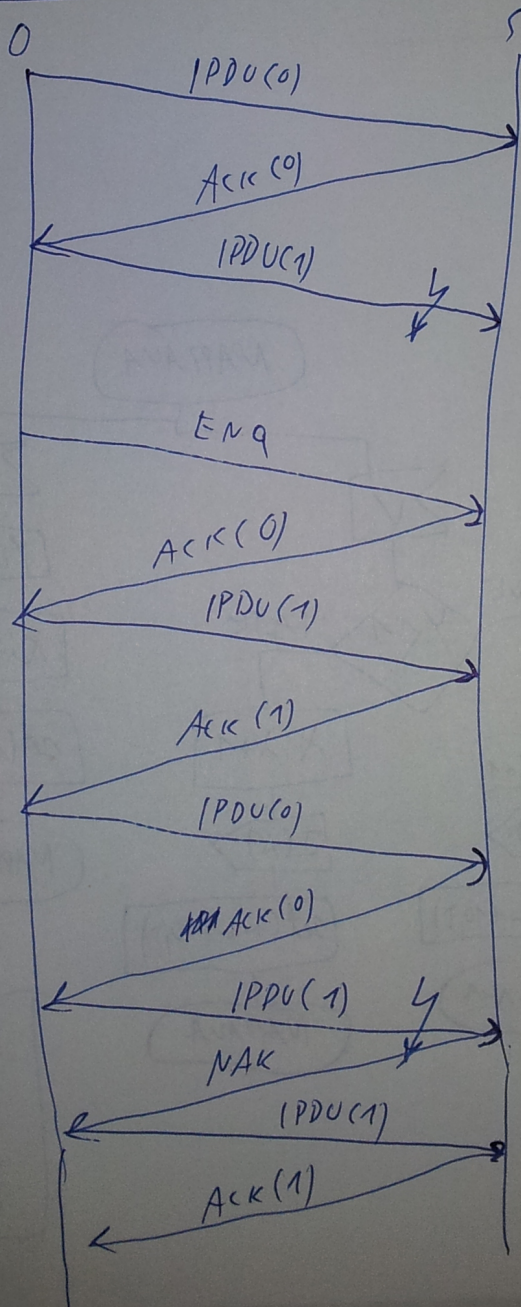 O S
IPDU(0)
Ack(0)
IPDU(1)
ENQ
ACK(0)
IPDU(1)
Ack(1)
IPDU(0)
ACK(0)
IPDU(1)
NAK
IPDU(1)
ACK(1)